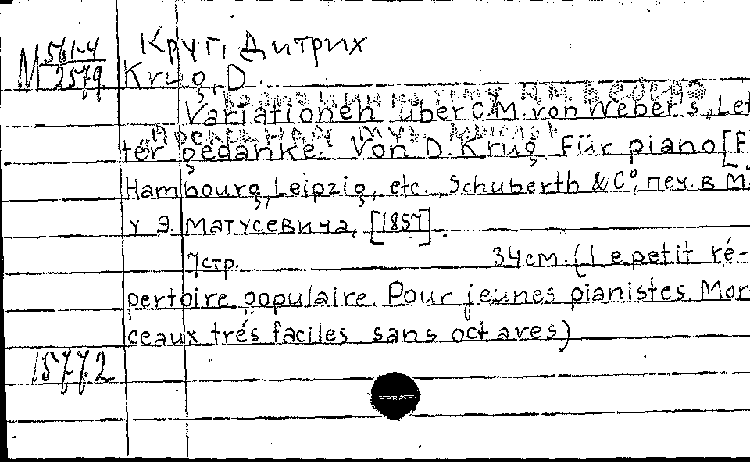 М 561-4 Круг, Дитрих
2579 Krug, D.
Variationen über C.M. von Weber's „Let
ter gedanke." Von D. Krug Für piano [F
Hambourg, Leipzig, etc. Schuberth & Cº, печ. в М.
у Э. Матусевича, [1857].
7 стр. 34 см. (Le petit ré-
pertoire populaire. Pour jeunes pianistes. Mor
ceaux trés faciles sans octaves)
15772